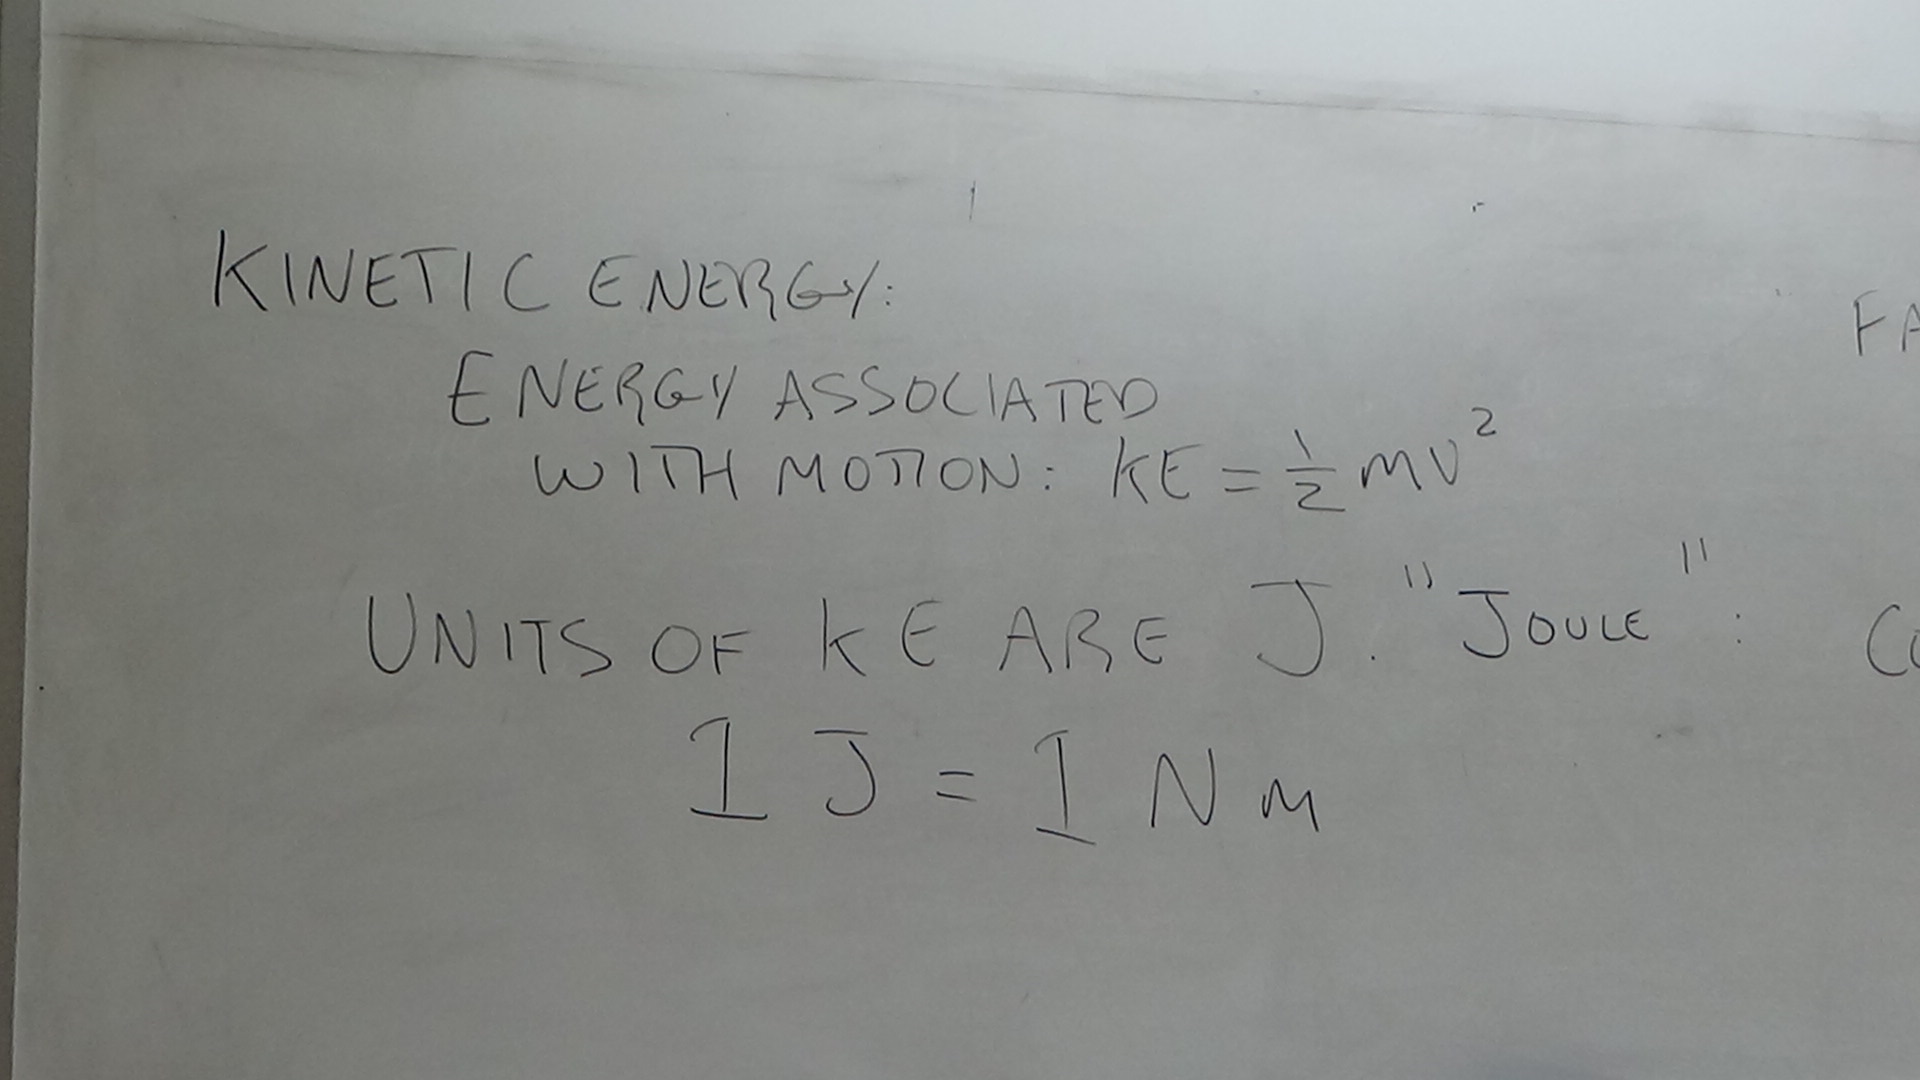 KINETIC ENERGY:
ENERGY ASSOCIATED
WITH MOTION: KE = 1/2 mv²
UNITS OF KE ARE J. "JOULE":
1 J = 1 N m
FA
Co